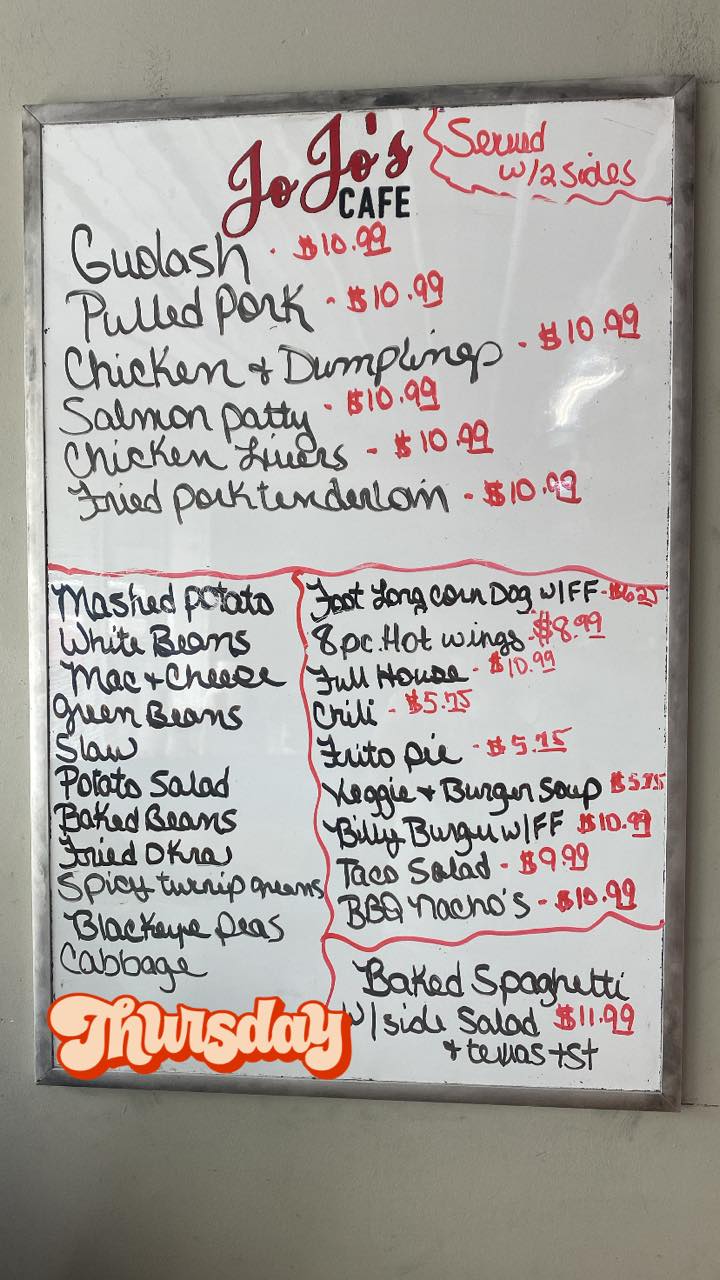 JoJo's
CAFE
Served
w/2 sides
Guolash - $10.99
Pulled Pork - $10.99
Chicken + Dumplings - $10.99
Salmon patty - $10.99
Chicken Livers - $10.99
Fried pork tenderloin - $10.99
Mashed potato
White Beans
Mac + Cheese
green Beans
Slaw
Potato Salad
Baked Beans
Fried Okra
Spicy turnip greens
Blackeye peas
Cabbage
Foot Long corn Dog w/FF - $6.25
8 pc. Hot wings - $8.99
Full House - $10.99
Chili - $5.75
Frito pie - $5.75
Veggie + Burger Soup $5.75
Billy Burger w/FF $10.99
Taco Salad - $9.99
BBQ nacho's - $10.99
Baked Spaghetti
w/side Salad $11.99
+ texas tst
Thursday